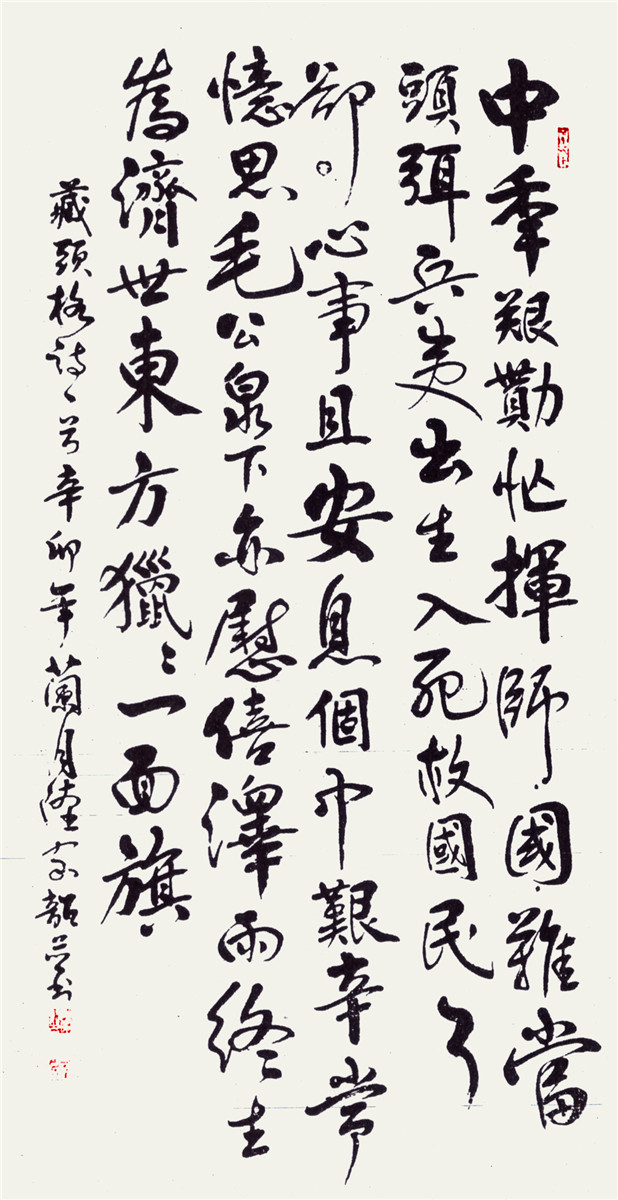 中秊艱勩忙揮師國難當
頭弭兵夷出生入死救國民了
卻心事且安息個中艱辛常
憶思毛公泉下亦慰僖澤雨終生
為濟世東方獵々一面旗
藏頭格詩一首辛卯年蘭月陸家韶並書